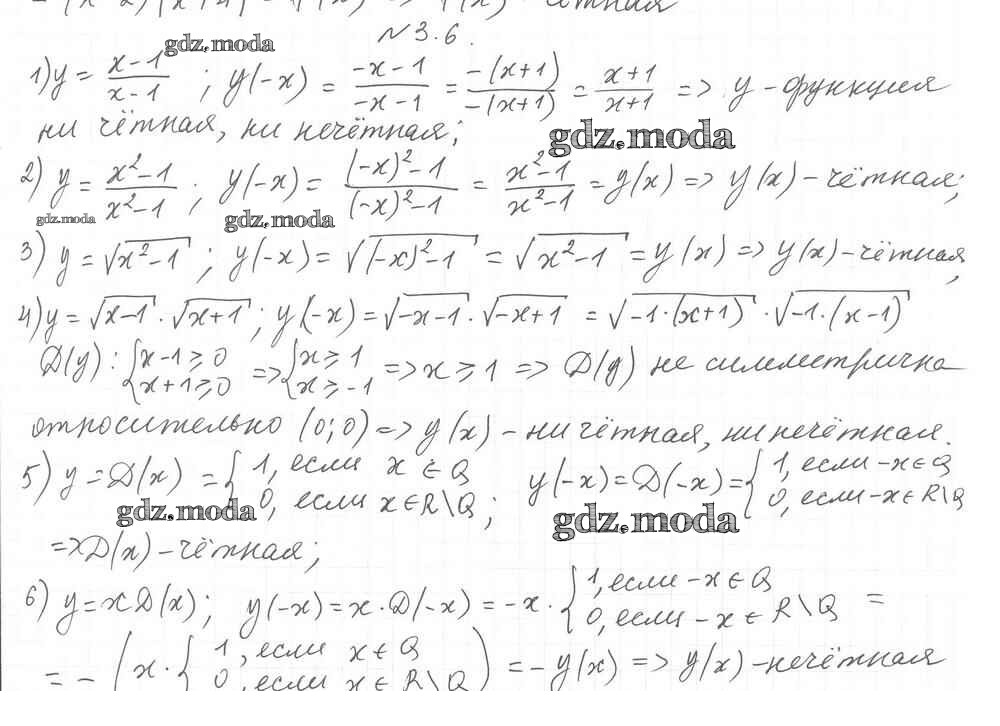 N 3.6.
gdz.moda
1) y = (x-1)/(x-1) ; y(-x) = (-x-1)/(-x-1) = (-(x+1))/(-(x+1)) = (x+1)/(x+1) => y - функция
ни чётная, ни нечётная;
gdz.moda
2) y = (x²-1)/(x²-1) ; y(-x) = ((-x)²-1)/((-x)²-1) = (x²-1)/(x²-1) = y(x) => y(x) - чётная;
gdz.moda gdz.moda
3) y = √(x²-1) ; y(-x) = √((-x)²-1) = √(x²-1) = y(x) => y(x) - чётная,
4) y = √(x-1) · √(x+1) ; y(-x) = √(-x-1) · √(-x+1) = √(-1·(x+1)) · √(-1·(x-1))
D(y): { x-1 ≥ 0 => { x ≥ 1 => x ≥ 1 => D(y) не симметрична
x+1 ≥ 0 x ≥ -1
относительно (0;0) => y(x) - ни чётная, ни нечётная.
5) y = D(x) = { 1, если x ∈ Q y(-x) = D(-x) = { 1, если -x ∈ Q
0, если x ∈ R\Q; 0, если -x ∈ R\Q
gdz.moda gdz.moda
=> D(x) - чётная;
6) y = xD(x); y(-x) = x·D(-x) = -x · { 1, если -x ∈ Q =
0, если -x ∈ R\Q
= - (x · { 1, если x ∈ Q ) = -y(x) => y(x) - нечётная
0, если x ∈ R\Q